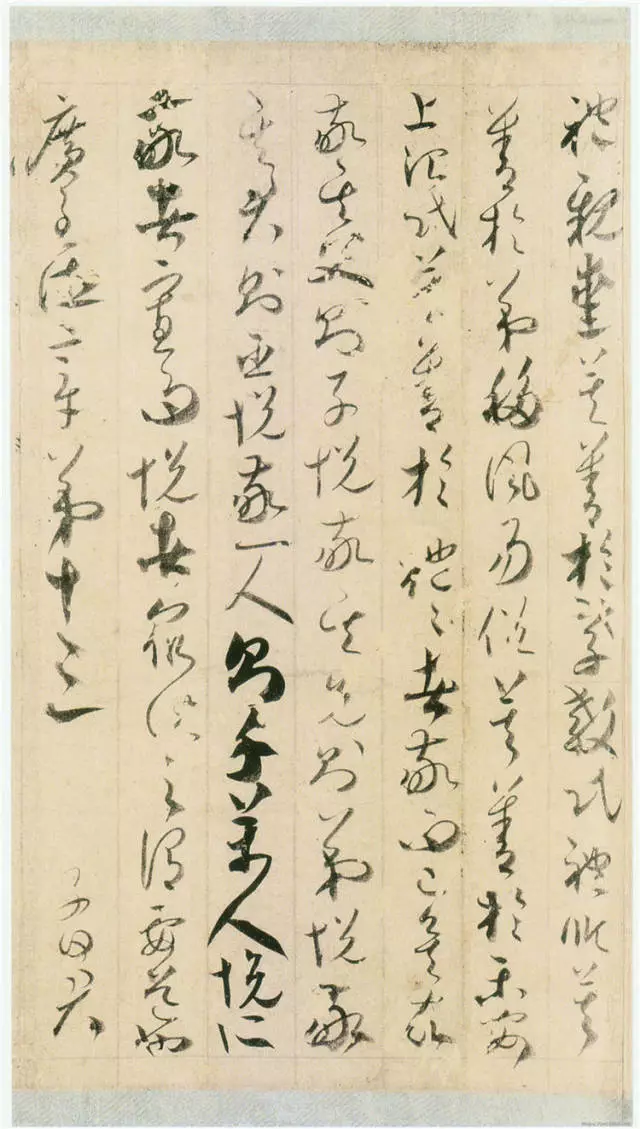 禮親愛莫善於孝教民禮順莫
善於弟移風易俗莫善於樂安
上治民莫善於禮〻者敬而已矣故
敬其父則子悅敬其兄則弟悅敬
其君則臣悅敬一人則千萬人悅所
敬者寡而悅者眾此之謂要道也
廣至德章第十三 子曰君